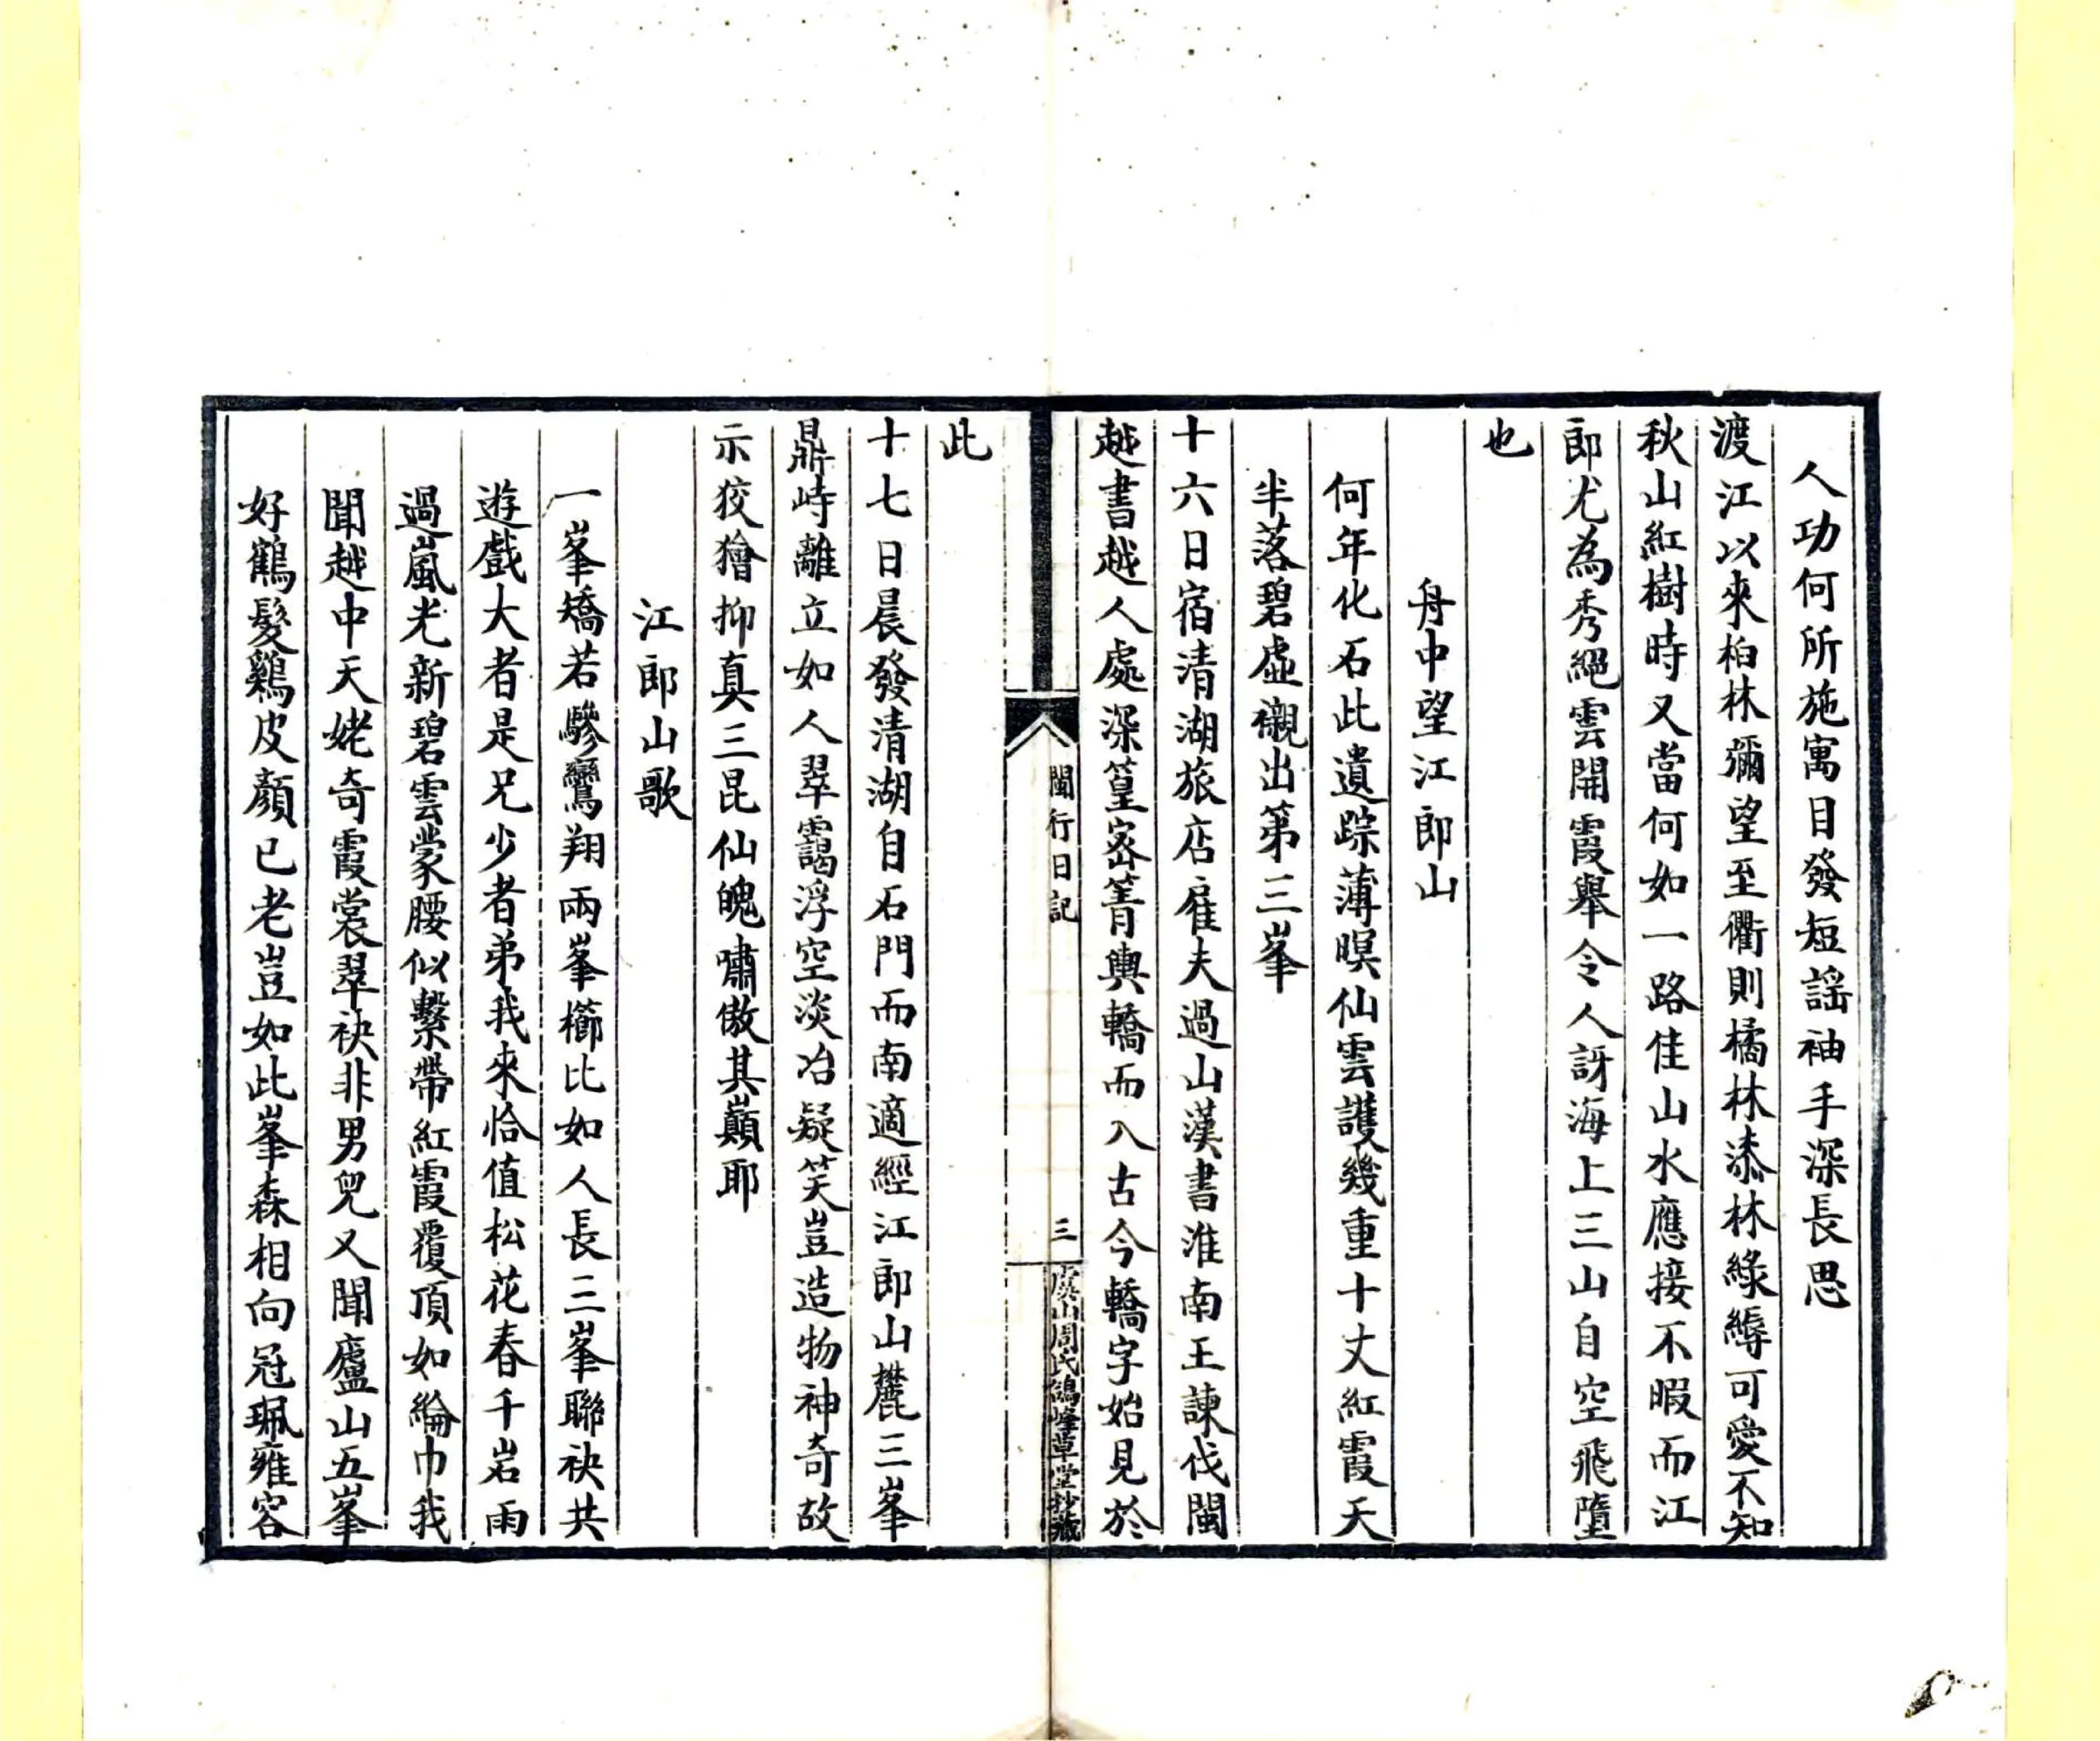 人功何所施寓目發短謡袖手深長思
渡江以來柏林彌望至衢則橘林漆林綠縟可愛不知
秋山紅樹時又當何如一路佳山水應接不暇而江
郎尤為秀絕雲開霞舉令人訝海上三山自空飛墮
也
舟中望江郎山
何年化石此遺踪薄暝仙雲護幾重十丈紅霞天
半落碧虛襯出第三峯
十六日宿清湖旅店雇夫過山漢書淮南王諫伐閩
越書越人處深篁宻箐輿轎而入古今轎字始見於
閩行日記
三
虞山周氏鴿峰草堂抄藏
此
十七日晨發清湖自石門而南適經江郎山麓三峯
鼎峙離立如人翠靄浮空淡冶疑笑豈造物神奇故
示狡獪抑真三昆仙魄嘯傲其巔耶
江郎山歌
一峯矯若驂鸞翔兩峯櫛比如人長三峯聯袂共
遊戲大者是兄少者弟我來恰值松花春千岩雨
過嵐光新碧雲蒙腰似繫帶紅霞覆頂如綸巾我
聞越中天姥奇霞裳翠袂非男兒又聞廬山五峯
好鶴髮鷄皮顏已老豈如此峯森相向冠珮雍容